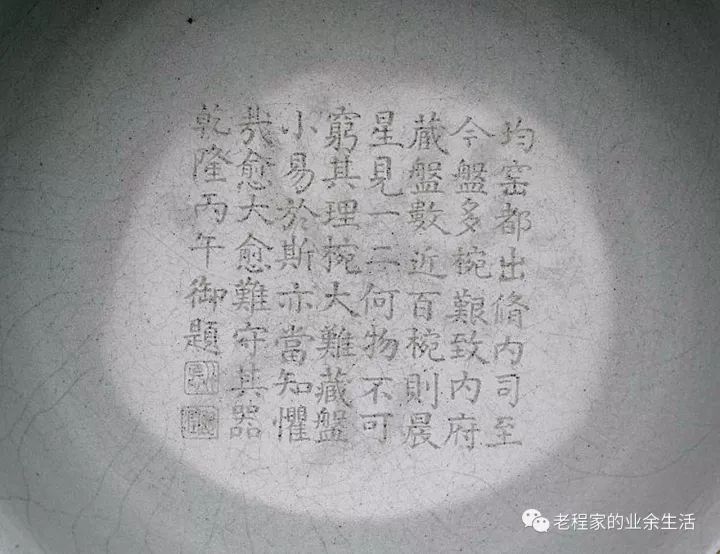 均窑都出脩内司至
今盤多椀艱致内府
藏盤數近百椀則晨
星見一二何物不可
窮其理椀大難藏盤
小易於斯亦當知懼
㢤愈大愈難守其器
乾隆丙午御題
老程家的业余生活